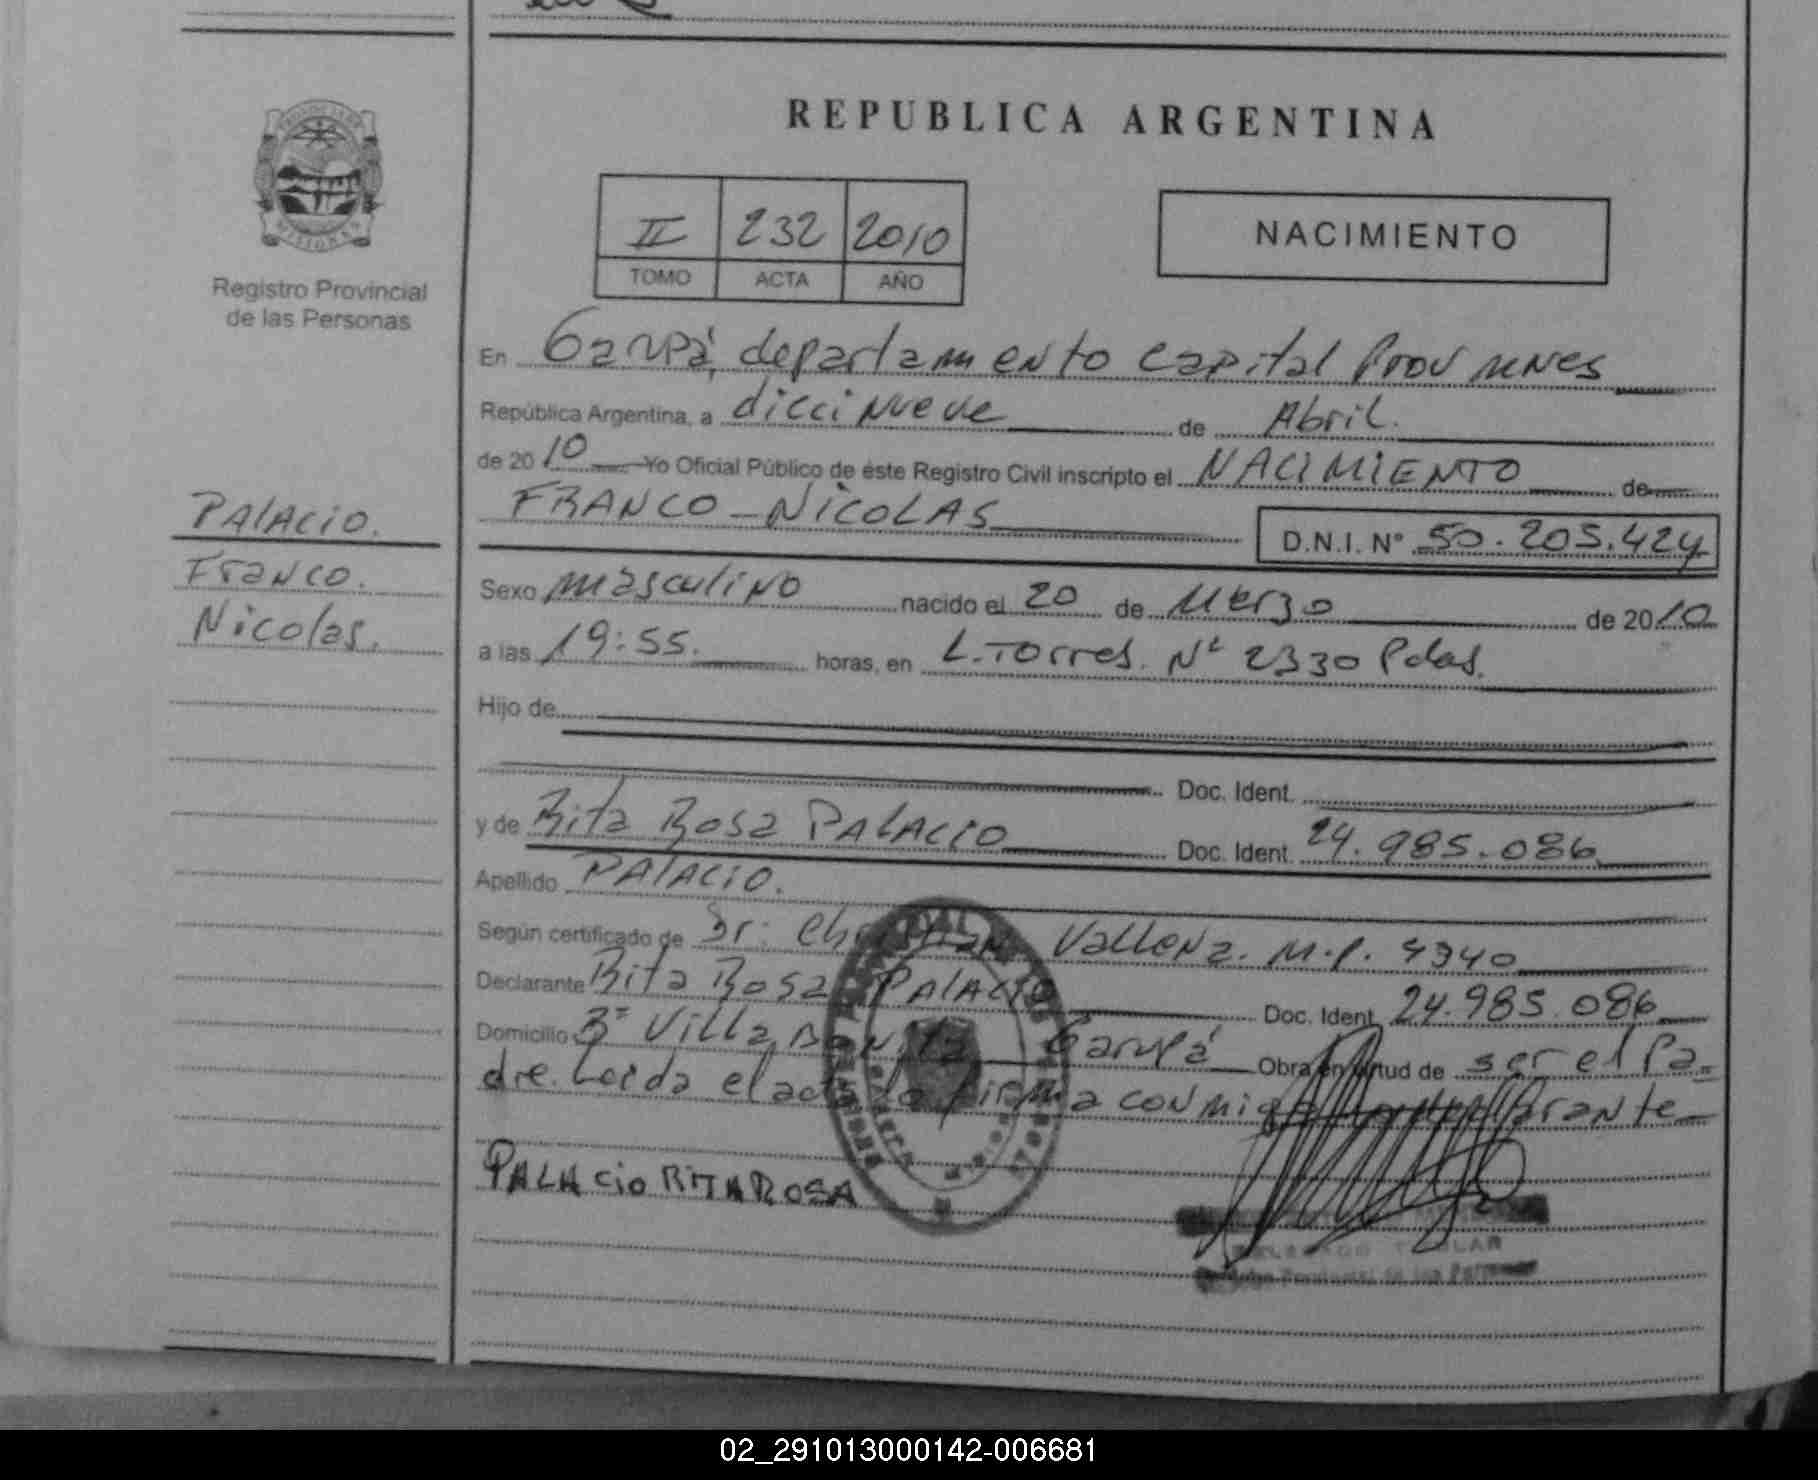 REPUBLICA ARGENTINA
II 232 2010
TOMO ACTA AÑO
NACIMIENTO
PROVINCIA DE
MISIONES
Registro Provincial
de las Personas
En Garupá, departamento Capital Prov
República Argentina, a diecinueve de Abril.
de 2010 Yo Oficial Público de éste Registro Civil inscripto el NACIMIENTO de
FRANCO-NICOLAS
D.N.I. Nº 50.205.424
PALACIO.
Franco.
Nicolas.
Sexo masculino nacido el 20 de Marzo de 2010
a las 19:55. horas, en L. Torres. Nº 2330 Pdas.
Hijo de
Doc. Ident.
y de Rita Rosa PALACIO Doc. Ident. 24.985.086
Apellido PALACIO.
Según certificado de Dr: Christian Vallena. M.P. 4340
Declarante Rita Rosa PALACIO Doc. Ident. 24.985.086
Domicilio Bº Villa Bonita Garupá Obra en virtud de ser el Pa-
dre. Leida el acta la firma conmigo la declarante
PALACIO RITA ROSA
DELEGADO TITULAR
02_291013000142-006681